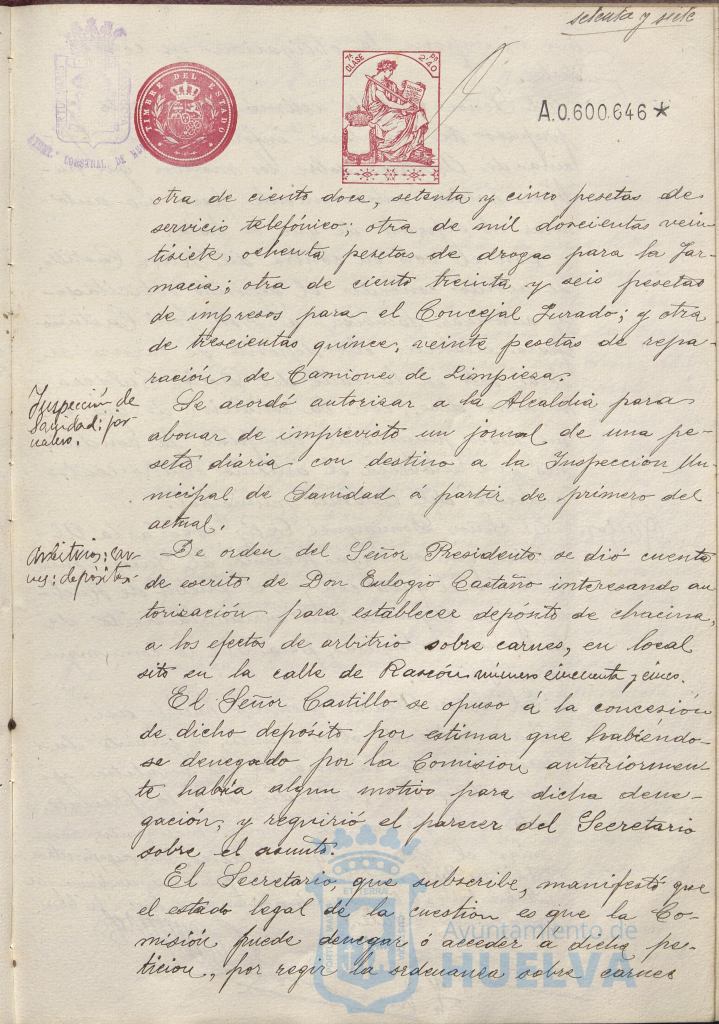 setenta y siete
TIMBRE DEL ESTADO
7ª CLASE
Ps 2'40
A.0.600.646 *
otra de ciento doce, setenta y cinco pesetas de
servicio telefónico; otra de mil doscientas vein-
tisiete, ochenta pesetas de drogas para la Far-
macia; otra de ciento treinta y seis pesetas
de impresos para el Concejal Jurado; y otra
de trescientas quince, veinte pesetas de repa-
ración de Camiones de Limpieza.
Inspección de
Sanidad: jor-
nales.
Se acordó autorizar a la Alcaldía para
abonar de imprevisto un jornal de una pe-
seta diaria con destino a la Inspección Mu-
nicipal de Sanidad á partir de primero del
actual.
Arbitrios: car-
nes: depósitos.
De orden del Señor Presidente se dió cuenta
de escrito de Don Eulogio Castaño interesando au-
torización para establecer depósito de chacina,
a los efectos de arbitrio sobre carnes, en local
sito en la calle de Rascón número cincuenta y cinco.
El Señor Castillo se opuso á la concesión
de dicho depósito por estimar que habiéndo-
se denegado por la Comision anteriormen-
te había algun motivo para dicha dene-
gación, y requirió el parecer del Secretario
sobre el asunto.
El Secretario, que subscribe, manifestó que
el estado legal de la cuestion es que la Co-
misión puede denegar ó acceder a dicha pe-
ticion, por regir la ordenanza sobre carnes
Ayuntamiento de
HUELVA